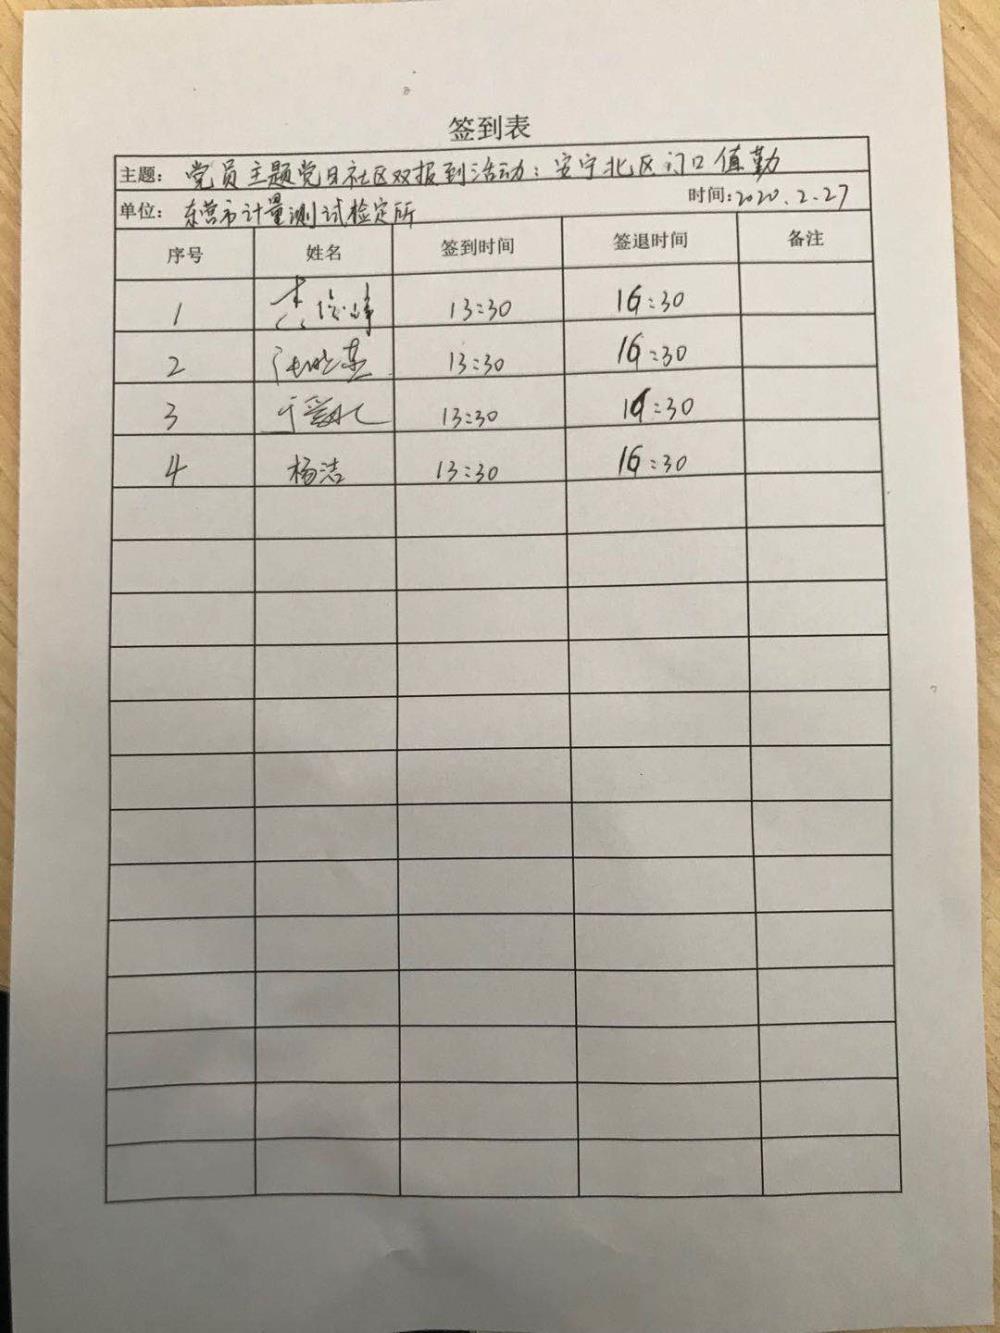 签到表
主题: 党员主题党日社区双报到活动:安宁北区门口值勤
单位: 东营市计量测试检定所 时间:2020.2.27
序号 姓名 签到时间 签退时间 备注
1 13:30 16:30
2 13:30 16:30
3 13:30 16:30
4 杨洁 13:30 16:30